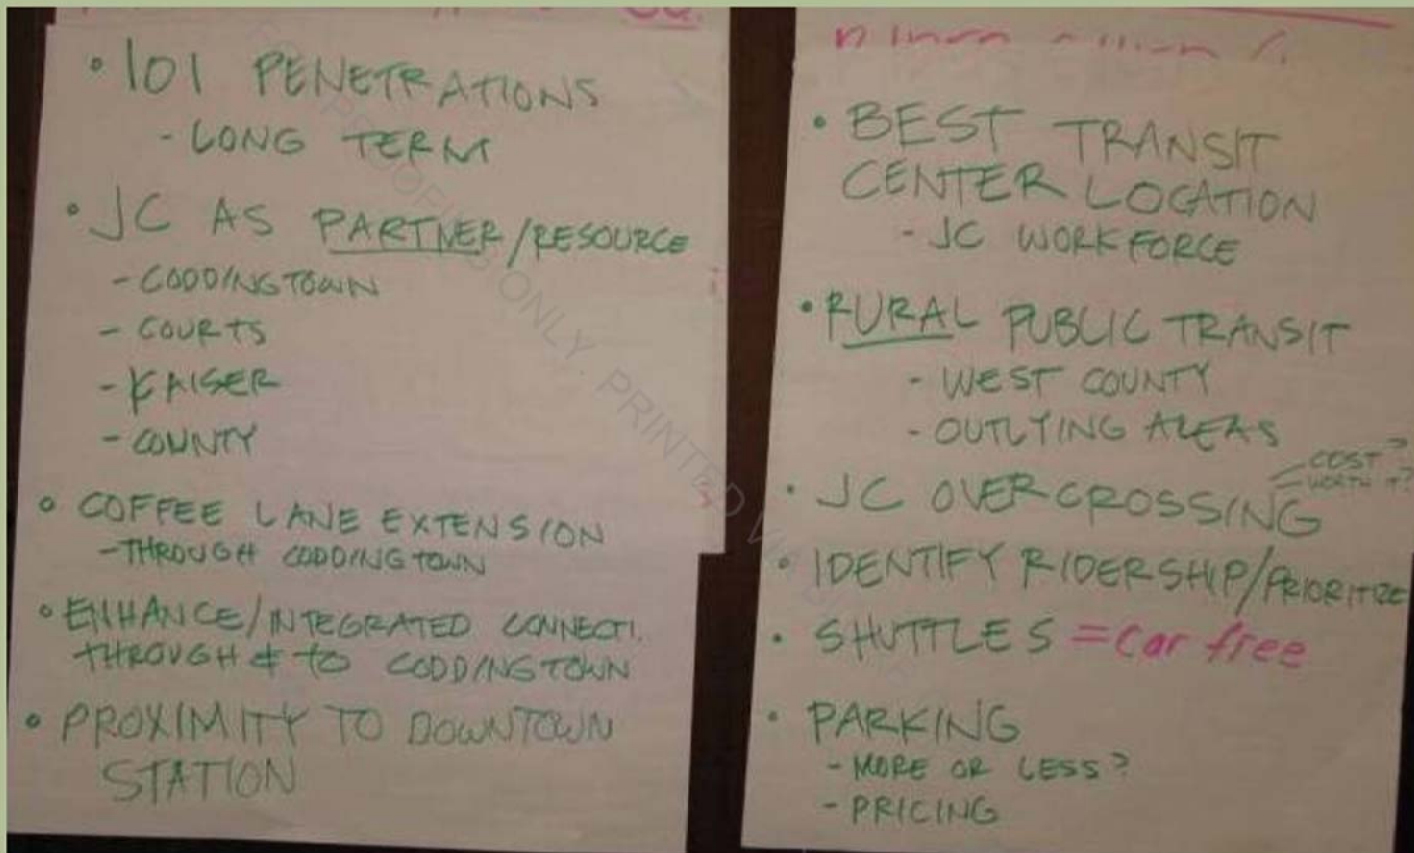 • 101 PENETRATIONS
- LONG TERM
• JC AS PARTNER/RESOURCE
- CODDINGTOWN
- COURTS
- KAISER
- COUNTY
• COFFEE LANE EXTENSION
- THROUGH CODDINGTOWN
• ENHANCE/INTEGRATED CONNECTI.
THROUGH & TO CODDINGTOWN
• PROXIMITY TO DOWNTOWN
STATION
• BEST TRANSIT
CENTER LOCATION
- JC WORKFORCE
• RURAL PUBLIC TRANSIT
- WEST COUNTY
- OUTLYING AREAS
• JC OVERCROSSING
COST?
WORTH IT?
• IDENTIFY RIDERSHIP/PRIORITIZE
• SHUTTLES = car free
• PARKING
- MORE OR LESS?
- PRICING